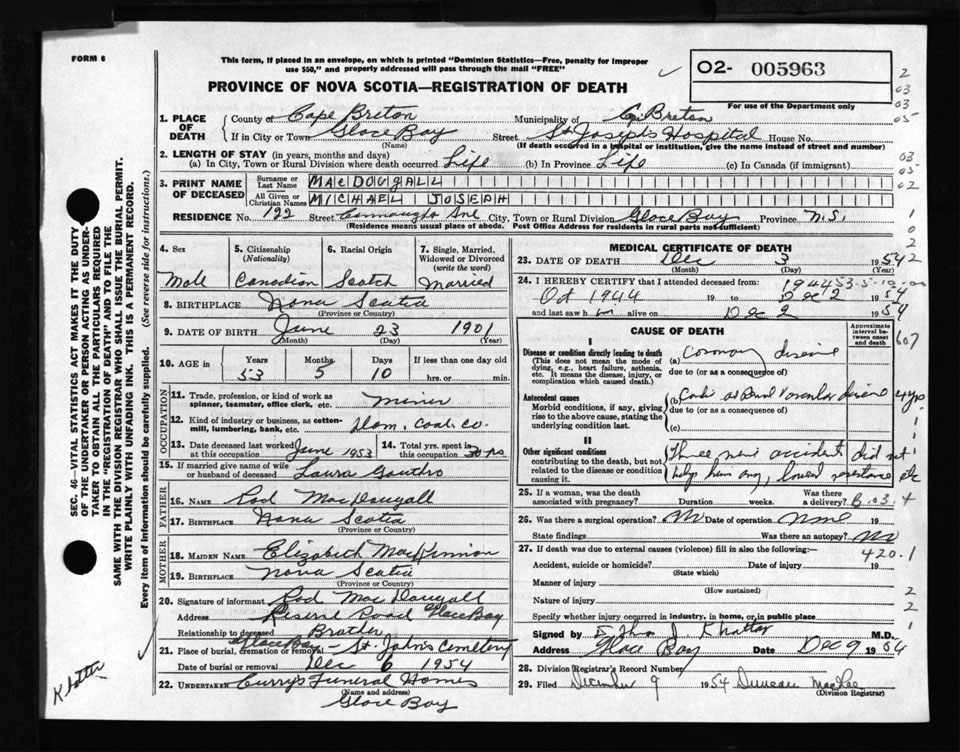 FORM 6
This form, if placed in an envelope, on which is printed "Dominion Statistics—Free, penalty for improper
use $50," and properly addressed will pass through the mail "FREE"
PROVINCE OF NOVA SCOTIA—REGISTRATION OF DEATH
O2- 005963
For use of the Department only
2
03
03
05
03
05
02
1
0
2
1. PLACE OF DEATH
County of Cape Breton Municipality of C. Breton
If in City or Town Glace Bay Street St Joseph's Hospital House No.
(Name) (If death occurred in a hospital or institution, give the name instead of street and number)
2. LENGTH OF STAY (in years, months and days)
(a) In City, Town or Rural Division where death occurred Life (b) In Province Life (c) In Canada (if immigrant)
3. PRINT NAME OF DECEASED
Surname or Last Name MACDOUGALL
All Given or Christian Names MICHAEL JOSEPH
RESIDENCE No. 122 Street Connaught Ave City, Town or Rural Division Glace Bay Province N.S.
(Residence means usual place of abode. Post Office Address for residents in rural parts not sufficient)
4. Sex Male
5. Citizenship (Nationality) Canadian
6. Racial Origin Scotch
7. Single, Married, Widowed or Divorced (write the word) Married
8. BIRTHPLACE Nova Scotia
(Province or Country)
9. DATE OF BIRTH June 23 1901
(Month) (Day) (Year)
10. AGE in Years 53 Months 5 Days 10 If less than one day old hrs. or min.
OCCUPATION
11. Trade, profession, or kind of work as spinner, teamster, office clerk, etc. miner
12. Kind of industry or business, as cotton-mill, lumbering, bank, etc. Dom. Coal. Co.
13. Date deceased last worked at this occupation June 1953
14. Total yrs. spent in this occupation 30 yrs
15. If married give name of wife or husband of deceased Laura Gouthro
FATHER
16. NAME Rod MacDougall
17. BIRTHPLACE Nova Scotia
(Province or Country)
MOTHER
18. MAIDEN NAME Elizabeth MacKinnon
19. BIRTHPLACE Nova Scotia
(Province or Country)
20. Signature of informant Rod MacDougall
Address Reserve Road Glace Bay
Relationship to deceased Brother
21. Place of burial, cremation or removal Glace Bay - St. John's Cemetery
Date of burial or removal Dec 6 1954
22. UNDERTAKER Curry's Funeral Homes
(Name and address)
Glace Bay
MEDICAL CERTIFICATE OF DEATH
23. DATE OF DEATH Dec 3 1954
(Month) (Day) (Year)
24. I HEREBY CERTIFY that I attended deceased from:
Oct 1944 19 to Dec 2 1954
and last saw h im alive on Dec 2 1954
CAUSE OF DEATH
Approximate interval between onset and death
607
I
Disease or condition directly leading to death
(This does not mean the mode of dying, e.g., heart failure, asthenia, etc. It means the disease, injury, or complication which caused death.
(a) Coronary disease
due to (or as a consequence of)
Antecedent causes
Morbid conditions, if any, giving rise to the above cause, stating the underlying condition last.
(b) vascular disease 4 yrs
due to (or as a consequence of)
(c)
II
Other significant conditions
contributing to the death, but not related to the disease or condition causing it.
accident did not
help him any, lowered resistance etc
25. If a woman, was the death associated with pregnancy? Duration weeks. Was there a delivery?
26. Was there a surgical operation? No Date of operation None 19
State findings Was there an autopsy? No
27. If death was due to external causes (violence) fill in also the following:— 420.1
Accident, suicide or homicide? Date of injury 19
(State which)
Manner of injury
(How sustained)
Nature of injury
Specify whether injury occurred in industry, in home, or in public place
Signed by J Khattar M.D.
Address Glace Bay Date Dec 9 1954
28. Division Registrar's Record Number
29. Filed December 9 1954 Duncan MacRae
(Division Registrar)
SEC. 46—VITAL STATISTICS ACT MAKES IT THE DUTY
OF THE UNDERTAKER OR PERSON ACTING AS UNDER-
TAKER TO OBTAIN ALL THE PARTICULARS REQUIRED
IN THE "REGISTRATION OF DEATH" AND TO FILE THE
SAME WITH THE DIVISION REGISTRAR WHO SHALL ISSUE THE BURIAL PERMIT.
WRITE PLAINLY WITH UNFADING INK. THIS IS A PERMANENT RECORD.
Every item of information should be carefully supplied. (See reverse side for instructions.)
Khattar